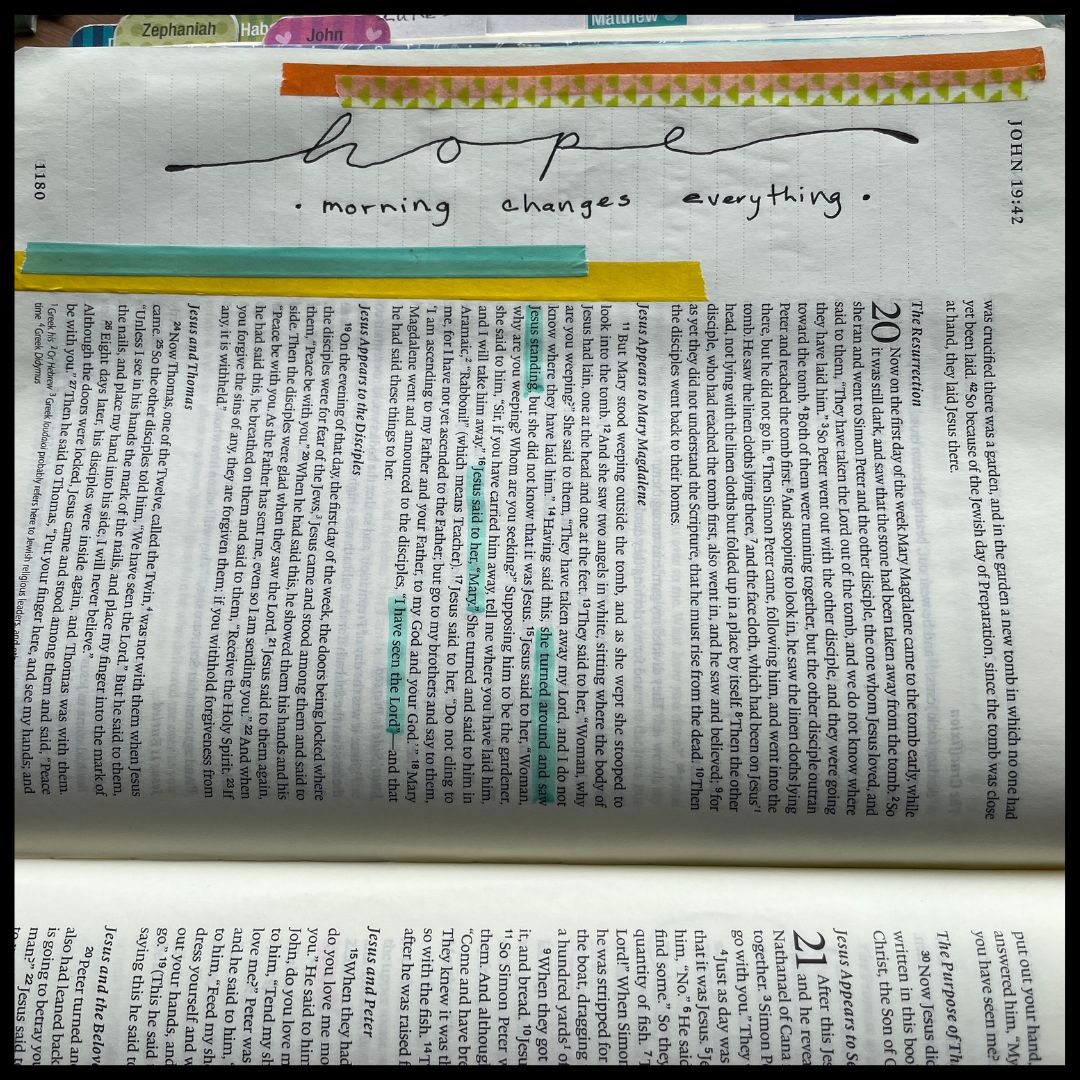 Zephaniah
Hab
John
Matthew
hope
· morning changes everything ·
JOHN 19:42
1180
was crucified there was a garden, and in the garden a new tomb in which no one had
yet been laid. 42 So because of the Jewish day of Preparation, since the tomb was close
at hand, they laid Jesus there.
The Resurrection
20 Now on the first day of the week Mary Magdalene came to the tomb early, while
it was still dark, and saw that the stone had been taken away from the tomb. 2 So
she ran and went to Simon Peter and the other disciple, the one whom Jesus loved, and
said to them, “They have taken the Lord out of the tomb, and we do not know where
they have laid him.” 3 So Peter went out with the other disciple, and they were going
toward the tomb. 4 Both of them were running together, but the other disciple outran
Peter and reached the tomb first. 5 And stooping to look in, he saw the linen cloths lying
there, but he did not go in. 6 Then Simon Peter came, following him, and went into the
tomb. He saw the linen cloths lying there, 7 and the face cloth, which had been on Jesus’ 1
head, not lying with the linen cloths but folded up in a place by itself. 8 Then the other
disciple, who had reached the tomb first, also went in, and he saw and believed; 9 for
as yet they did not understand the Scripture, that he must rise from the dead. 10 Then
the disciples went back to their homes.
Jesus Appears to Mary Magdalene
11 But Mary stood weeping outside the tomb, and as she wept she stooped to
look into the tomb. 12 And she saw two angels in white, sitting where the body of
Jesus had lain, one at the head and one at the feet. 13 They said to her, “Woman, why
are you weeping?” She said to them, “They have taken away my Lord, and I do not
know where they have laid him.” 14 Having said this, she turned around and saw
Jesus standing, but she did not know that it was Jesus. 15 Jesus said to her, “Woman,
why are you weeping? Whom are you seeking?” Supposing him to be the gardener,
she said to him, “Sir, if you have carried him away, tell me where you have laid him,
and I will take him away.” 16 Jesus said to her, “Mary.” She turned and said to him in
Aramaic, 2 “Rabboni!” (which means Teacher). 17 Jesus said to her, “Do not cling to
me, for I have not yet ascended to the Father; but go to my brothers and say to them,
‘I am ascending to my Father and your Father, to my God and your God.’” 18 Mary
Magdalene went and announced to the disciples, “I have seen the Lord”—and that
he had said these things to her.
Jesus Appears to the Disciples
19 On the evening of that day, the first day of the week, the doors being locked where
the disciples were for fear of the Jews, 3 Jesus came and stood among them and said to
them, “Peace be with you.” 20 When he had said this, he showed them his hands and his
side. Then the disciples were glad when they saw the Lord. 21 Jesus said to them again,
“Peace be with you. As the Father has sent me, even so I am sending you.” 22 And when
he had said this, he breathed on them and said to them, “Receive the Holy Spirit. 23 If
you forgive the sins of any, they are forgiven them; if you withhold forgiveness from
any, it is withheld.”
Jesus and Thomas
24 Now Thomas, one of the Twelve, called the Twin, 4 was not with them when Jesus
came. 25 So the other disciples told him, “We have seen the Lord.” But he said to them,
“Unless I see in his hands the mark of the nails, and place my finger into the mark of
the nails, and place my hand into his side, I will never believe.”
26 Eight days later, his disciples were inside again, and Thomas was with them.
Although the doors were locked, Jesus came and stood among them and said, “Peace
be with you.” 27 Then he said to Thomas, “Put your finger here, and see my hands; and
1 Greek his 2 Or Hebrew 3 Greek Ioudaioi probably refers here to Jewish religious leaders, and
time 4 Greek Didymus
put out your hand,
answered him, “My
you have seen me?
The Purpose of Th
30 Now Jesus did
written in this boo
Christ, the Son of G
Jesus Appears to Se
21 After this Jes
and he revea
Nathanael of Cana
together. 3 Simon P
go with you.” They
4 Just as day was
that it was Jesus. 5 Je
him, “No.” 6 He said
find some.” So they
quantity of fish. 7 T
Lord!” When Simon
he was stripped for
the boat, dragging
a hundred yards 1 o
9 When they got
it, and bread. 10 Jesu
11 So Simon Peter w
them. And althoug
“Come and have bre
They knew it was th
so with the fish. 14 T
after he was raised f
Jesus and Peter
15 When they had
do you love me mo
you.” He said to him
John, do you love m
to him, “Tend my sh
love me?” Peter was
and he said to him,
to him, “Feed my sh
dress yourself and w
out your hands, and
go.” 19 (This he said
saying this he said to
Jesus and the Belov
20 Peter turned and
also had leaned back
is going to betray you
man?” 22 Jesus said t